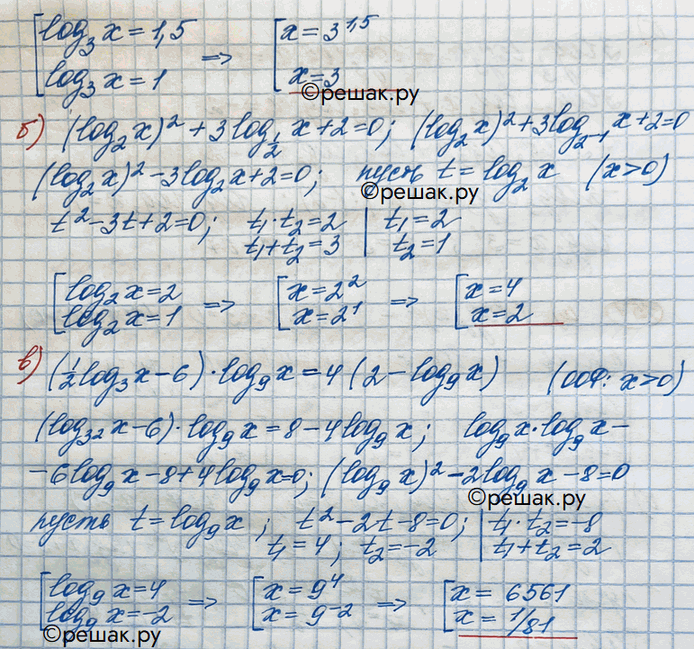 [log₃x = 1,5 => [x = 3^1,5
[log₃x = 1 [x = 3
©решак.ру
б) (log₂x)² + 3log_1/2 x + 2 = 0; (log₂x)² + 3log_2⁻¹ x + 2 = 0
(log₂x)² - 3log₂x + 2 = 0; пусть t = log₂x (x > 0)
©решак.ру
t² - 3t + 2 = 0; t₁·t₂ = 2 | t₁ = 2
t₁ + t₂ = 3 | t₂ = 1
[log₂x = 2 => [x = 2² => [x = 4
[log₂x = 1 [x = 2¹ [x = 2
в) (½log₃x - 6)·log₉x = 4(2 - log₉x) (ООФ: x > 0)
(log_3² x - 6)·log₉x = 8 - 4log₉x; log₉x·log₉x -
- 6log₉x - 8 + 4log₉x = 0; (log₉x)² - 2log₉x - 8 = 0
©решак.ру
пусть t = log₉x; t² - 2t - 8 = 0; | t₁·t₂ = -8
t₁ = 4; t₂ = -2 | t₁ + t₂ = 2
[log₉x = 4 => [x = 9⁴ => [x = 6561
[log₉x = -2 [x = 9⁻² [x = 1/81
©решак.ру